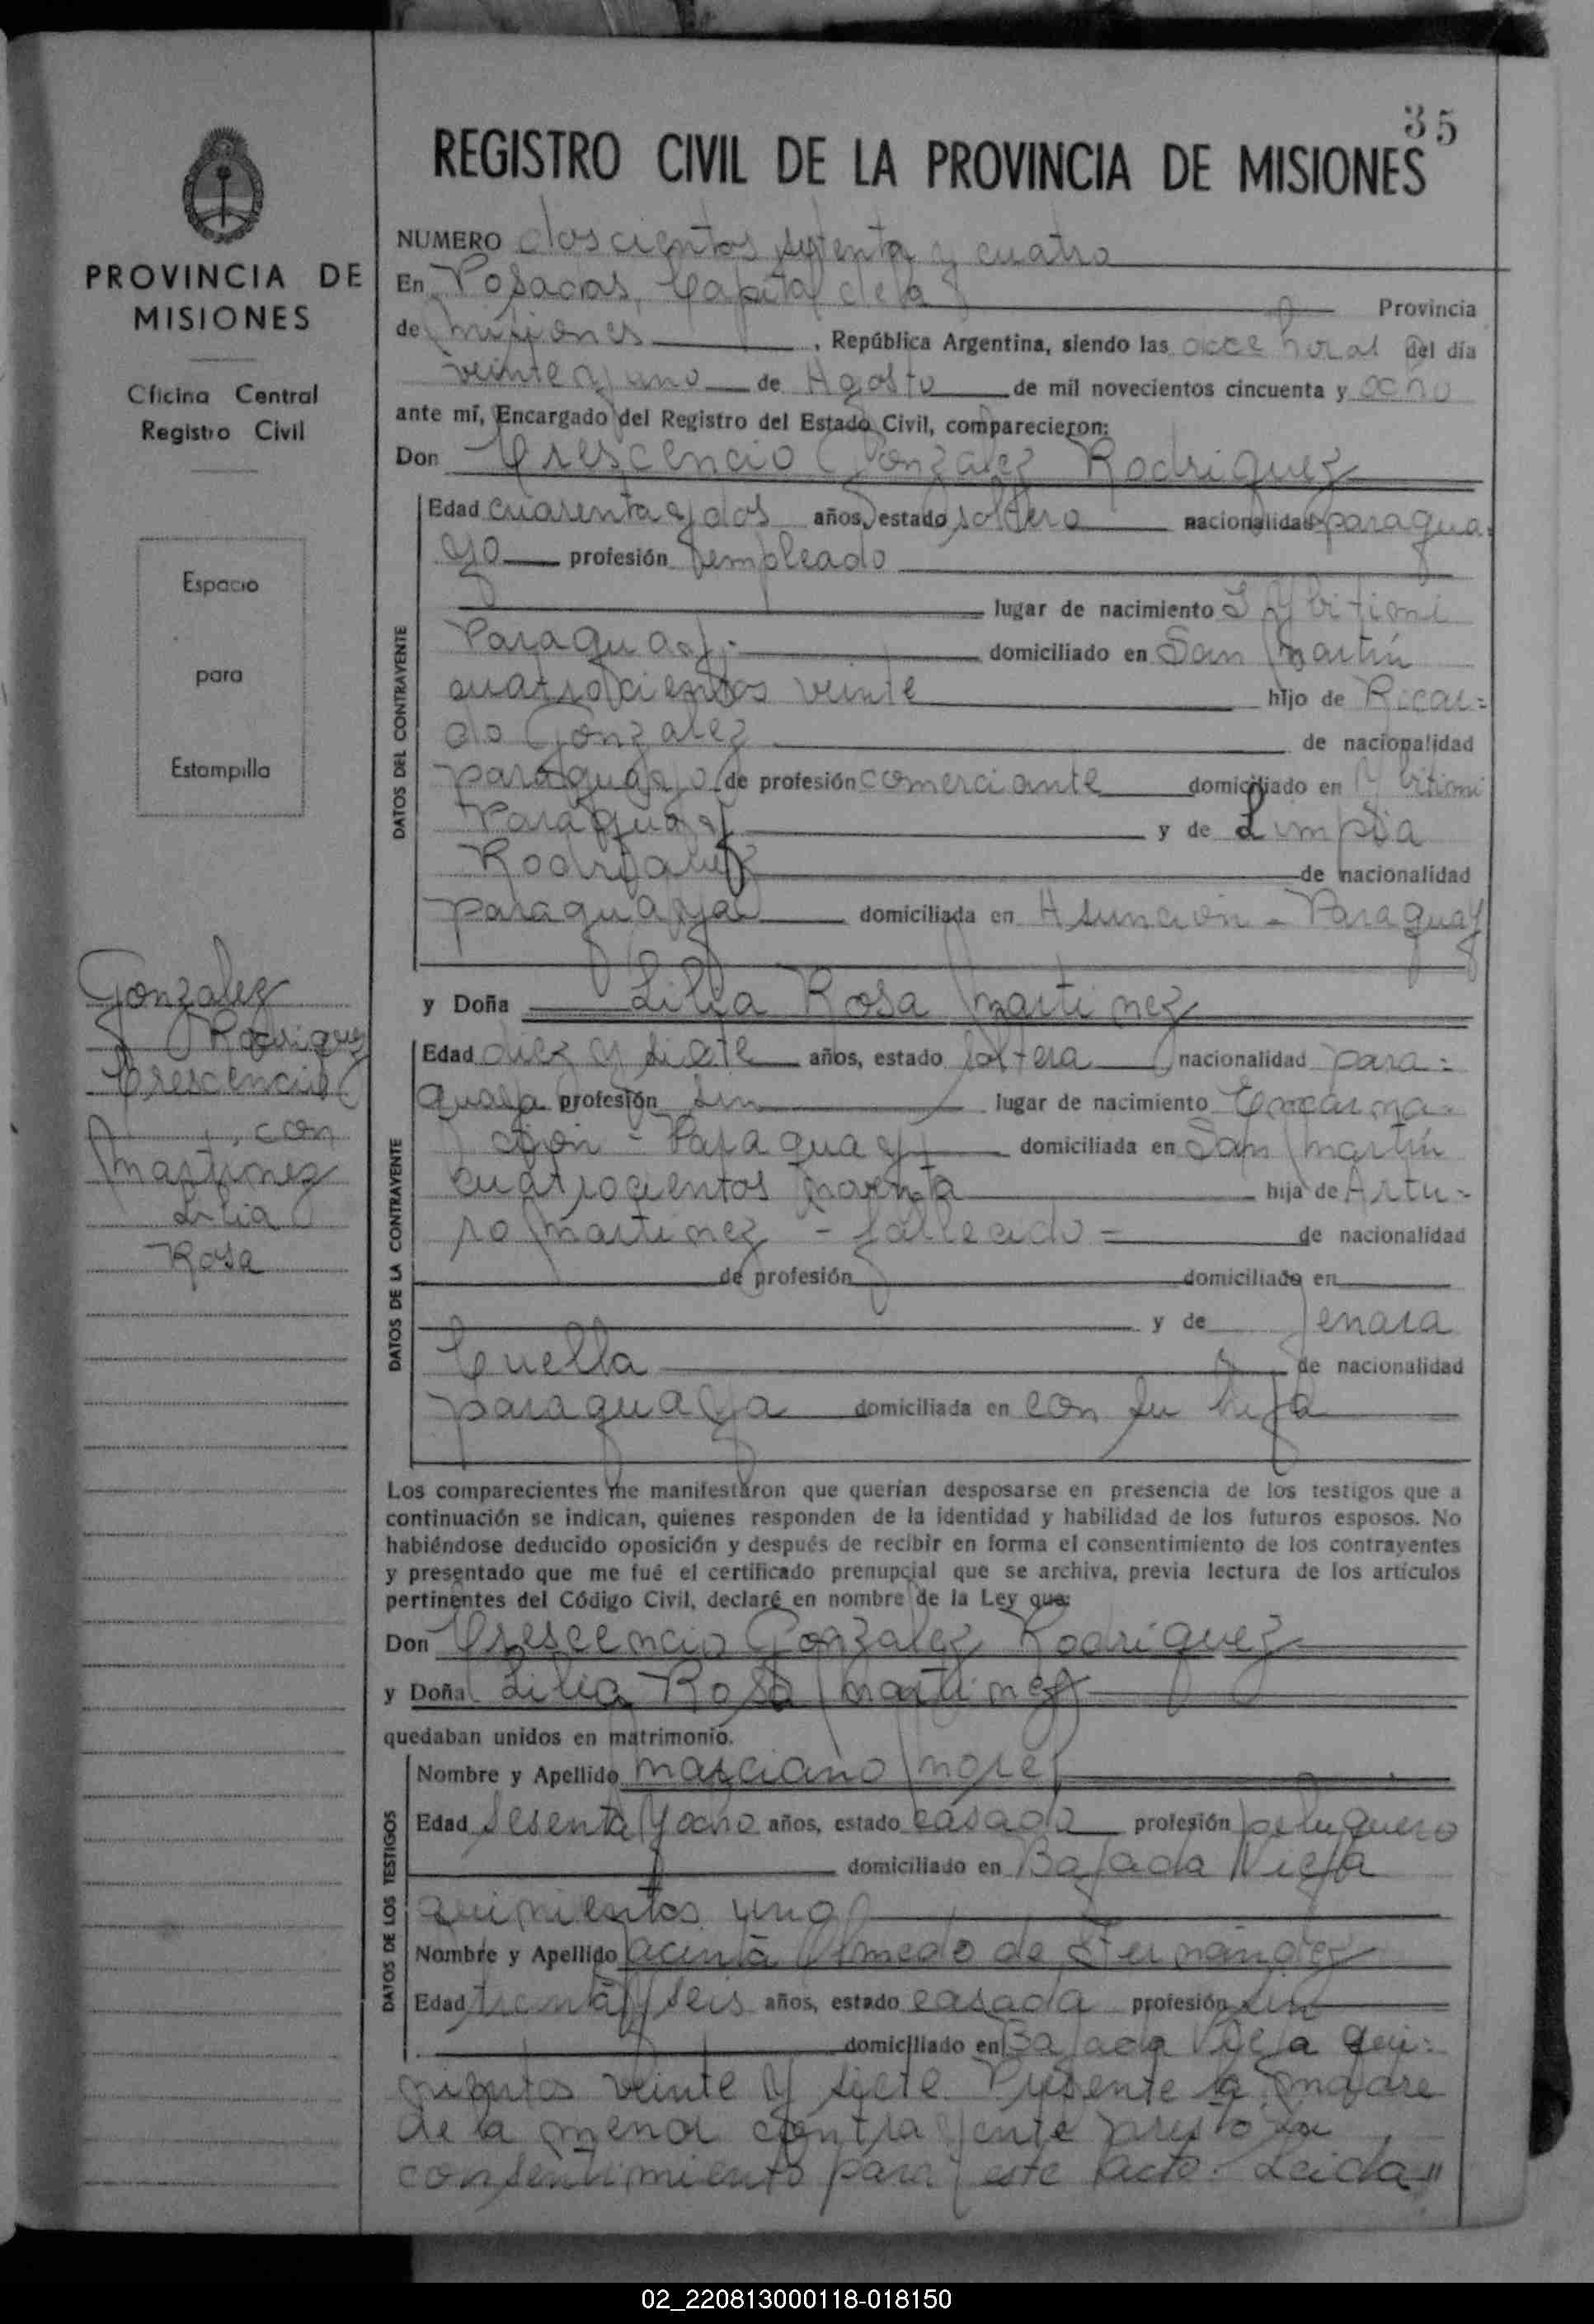 35
REGISTRO CIVIL DE LA PROVINCIA DE MISIONES
PROVINCIA DE
MISIONES
Oficina Central
Registro Civil
Espacio
para
Estampilla
Gonzalez
Rodriguez
Crescencio
, con
Martinez
Lilia
Rosa
NUMERO doscientos setenta y cuatro
En Posadas, Capital de la Provincia
de Misiones, República Argentina, siendo las doce horas del día
veinte y uno de Agosto de mil novecientos cincuenta y ocho
ante mí, Encargado del Registro del Estado Civil, comparecieron:
Don Crescencio Gonzalez Rodriguez
DATOS DEL CONTRAYENTE
Edad cuarenta y dos años, estado soltero nacionalidad paragua-
yo profesión empleado
lugar de nacimiento Ybitimi
Paraguay.- domiciliado en San Martín
cuatrocientos veinte hijo de Ricar=
do Gonzalez de nacionalidad
paraguayo de profesión comerciante domiciliado en Ybitimi
Paraguay y de Limpia
Rodriguez de nacionalidad
paraguaya domiciliada en Asunción - Paraguay
y Doña Lilia Rosa Martinez
DATOS DE LA CONTRAYENTE
Edad diez y siete años, estado soltera nacionalidad para=
guaya profesión sin lugar de nacimiento Encarna-
ción - Paraguay domiciliada en San Martín
cuatrocientos noventa hija de Artu=
ro Martinez - fallecido = de nacionalidad
de profesión domiciliado en
y de Jenara
Cuella de nacionalidad
paraguaya domiciliada en con su hija
Los comparecientes me manifestaron que querían desposarse en presencia de los testigos que a
continuación se indican, quienes responden de la identidad y habilidad de los futuros esposos. No
habiéndose deducido oposición y después de recibir en forma el consentimiento de los contrayentes
y presentado que me fué el certificado prenupcial que se archiva, previa lectura de los artículos
pertinentes del Código Civil, declaré en nombre de la Ley que:
Don Crescencio Gonzalez Rodriguez
y Doña Lilia Rosa Martinez
quedaban unidos en matrimonio.
DATOS DE LOS TESTIGOS
Nombre y Apellido Marciano Morel
Edad sesenta y ocho años, estado casado profesión peluquero
domiciliado en Bajada Vieja
quinientos uno
Nombre y Apellido Jacinta Olmedo de Fernández
Edad treinta y seis años, estado casada profesión sin
domiciliado en Bajada Vieja qui=
nientos veinte y siete. Presente la madre
de la menor contrayente prestó su
consentimiento para este acto. Leída"
02_220813000118-018150